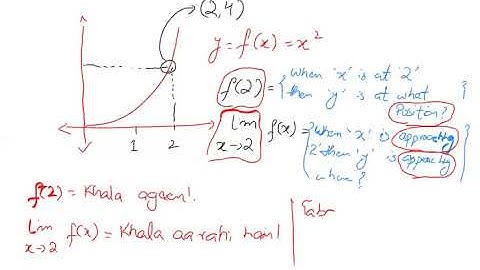 (2,4)
y = f(x) = x²
f(2) = { When 'x' is at '2'
then 'y' is at what
Position? }
Lim x→2 f(x) = { When 'x' is approaching
'2' then 'y' is approaching
where? }
1 2
f(2) = Khala agaen!
Lim x→2 f(x) = Khala aa rahi hain!